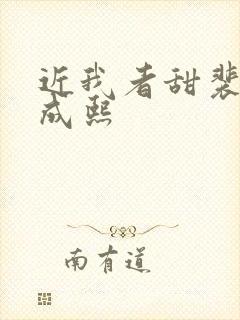 近我者甜裴
成熙
南有道